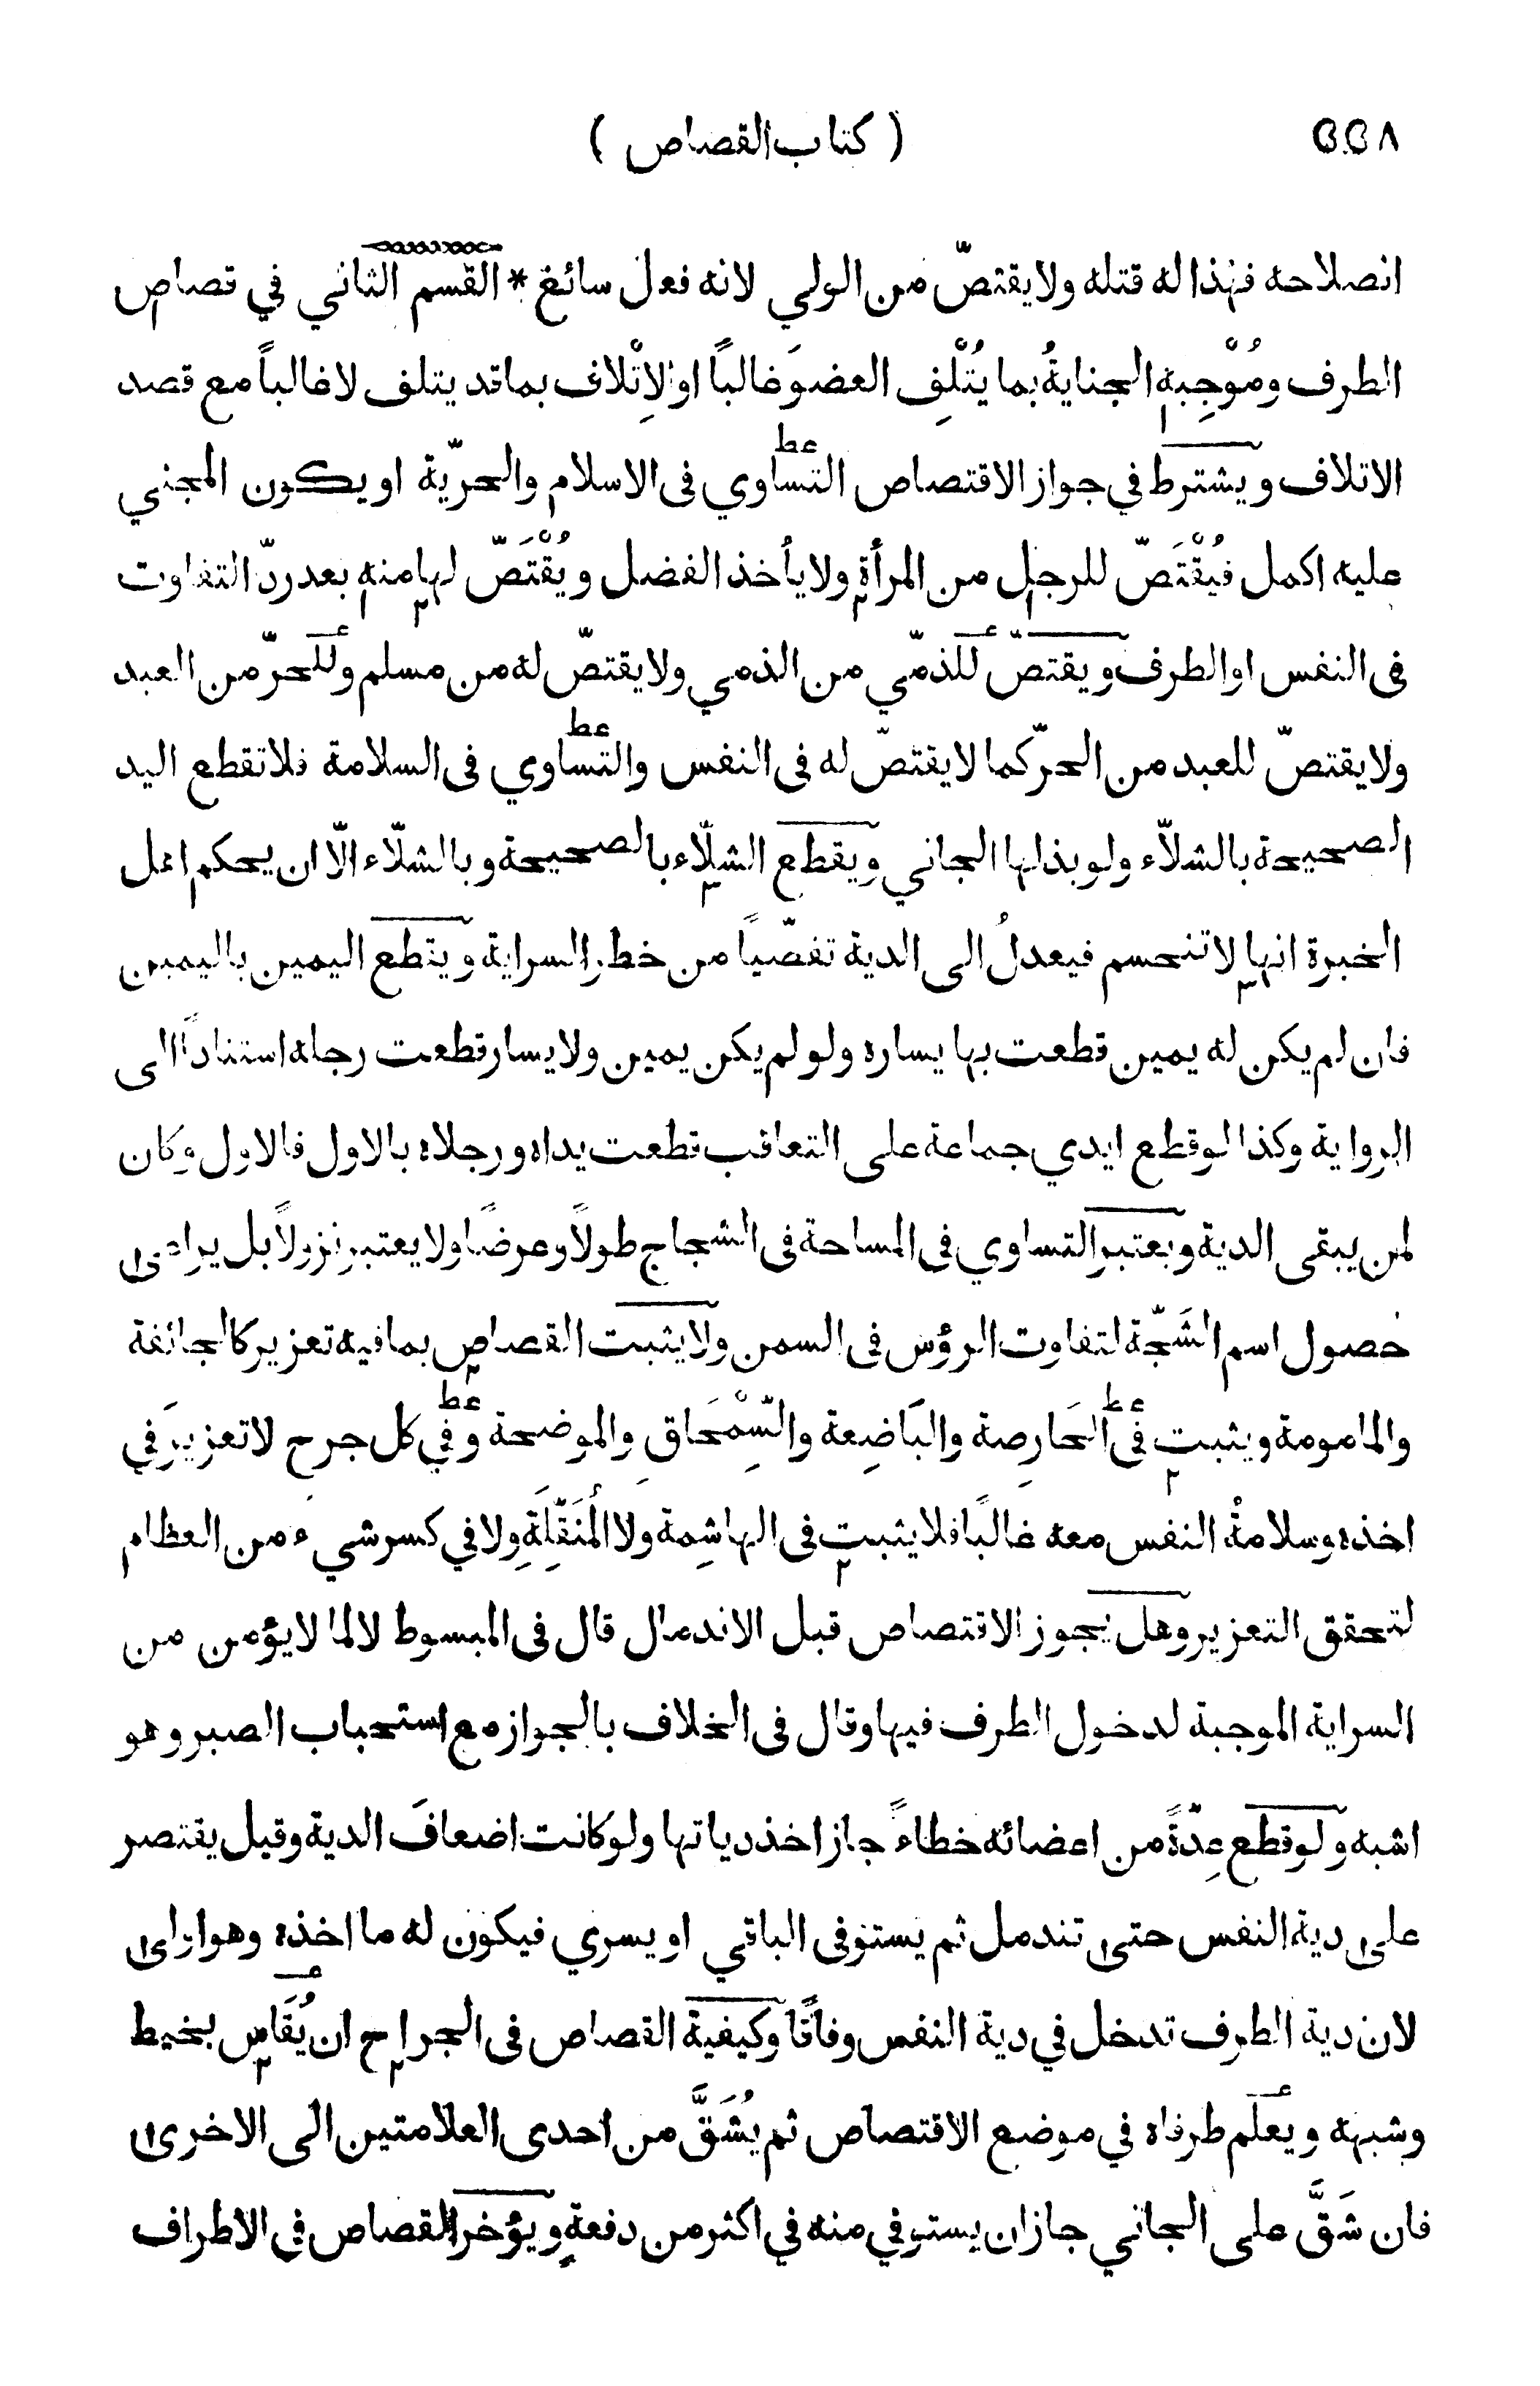 ٥٥٨ ( كتاب القصاص )
انصلاحه فهذا له قتله ولا يقتصّ من الولي لانه فعل سائغ * القسم الثاني في قصاص
الطرف ومُوْجِبه الجنايةُ بما يُتْلِف العضوَ غالباً او الاِتْلاف بما قد يتلف لا غالباً مع قصد
الاتلاف ويشترط في جواز الاقتصاص التساوي فى الاسلام والحرّية او يكون المجني
عليه اكمل فيُقْتَصّ للرجل من المرأة ولا يأخذ الفضل ويُقْتَصّ لها منه بعد ردّ التفاوت
فى النفس او الطرف ويقتصّ للذمّي من الذمي ولا يقتصّ له من مسلم وللحرّ من العبد
ولا يقتصّ للعبد من الحرّ كما لا يقتصّ له فى النفس والتساوي فى السلامة فلا تقطع اليد
الصحيحة بالشلّاء ولو بذلها الجاني ويقطع الشلّاء بالصحيحة وبالشلّاء الّا ان يحكم اهل
الخبرة انها لا تنحسم فيعدلُ الى الدية تفصّياً من خطر السراية ويقطع اليمين باليمين
فان لم يكن له يمين قطعت بها يساره ولو لم يكن يمين ولا يسار قطعت رجله استناداً الى
الرواية وكذا لو قطع ايدي جماعة على التعاقب قطعت يداه ورجلاه بالاول فالاول وكان
لمن يبقى الدية ويعتبر التساوي فى المساحة فى الشجاج طولاً وعرضاً ولا يعتبر نزولاً بل يراعى
حصول اسم الشَجّة لتفاوت الرؤس فى السمن ولا يثبت القصاص بما فيه تعزير كالجائفة
والمامومة ويثبت فى الحَارِصة والبَاضِعة والسِّمْحَاقِ والموضحة وفي كل جرح لا تعزيرَ في
اخذه وسلامةُ النفس معه غالباً فلا يثبت فى الهاشِمة ولا المُنَقِّلَةِ ولا في كسر شيء من العظام
لتحقق التعزير وهل يجوز الاقتصاص قبل الاندمال قال فى المبسوط لا لما لا يؤمن من
السراية الموجبة لدخول الطرف فيها وقال فى الخلاف بالجواز مع استحباب الصبر وهو
اشبه ولو قطع عِدّةً من اعضائه خطاءً جاز اخذ دياتها ولو كانت اضعافَ الدية وقيل يقتصر
على دية النفس حتى تندمل ثم يستوفى الباقي او يسري فيكون له ما اخذه وهو اولى
لان دية الطرف تدخل في دية النفس وفاقًا وكيفية القصاص فى الجراح ان يُقَاس بخيط
وشبهه ويعلم طرفاه في موضع الاقتصاص ثم يُشَقَّ من احدى العلامتين الى الاخرى
فان شَقَّ على الجاني جاز ان يستوفي منه في اكثر من دفعةٍ ويؤخر القصاص في الاطراف